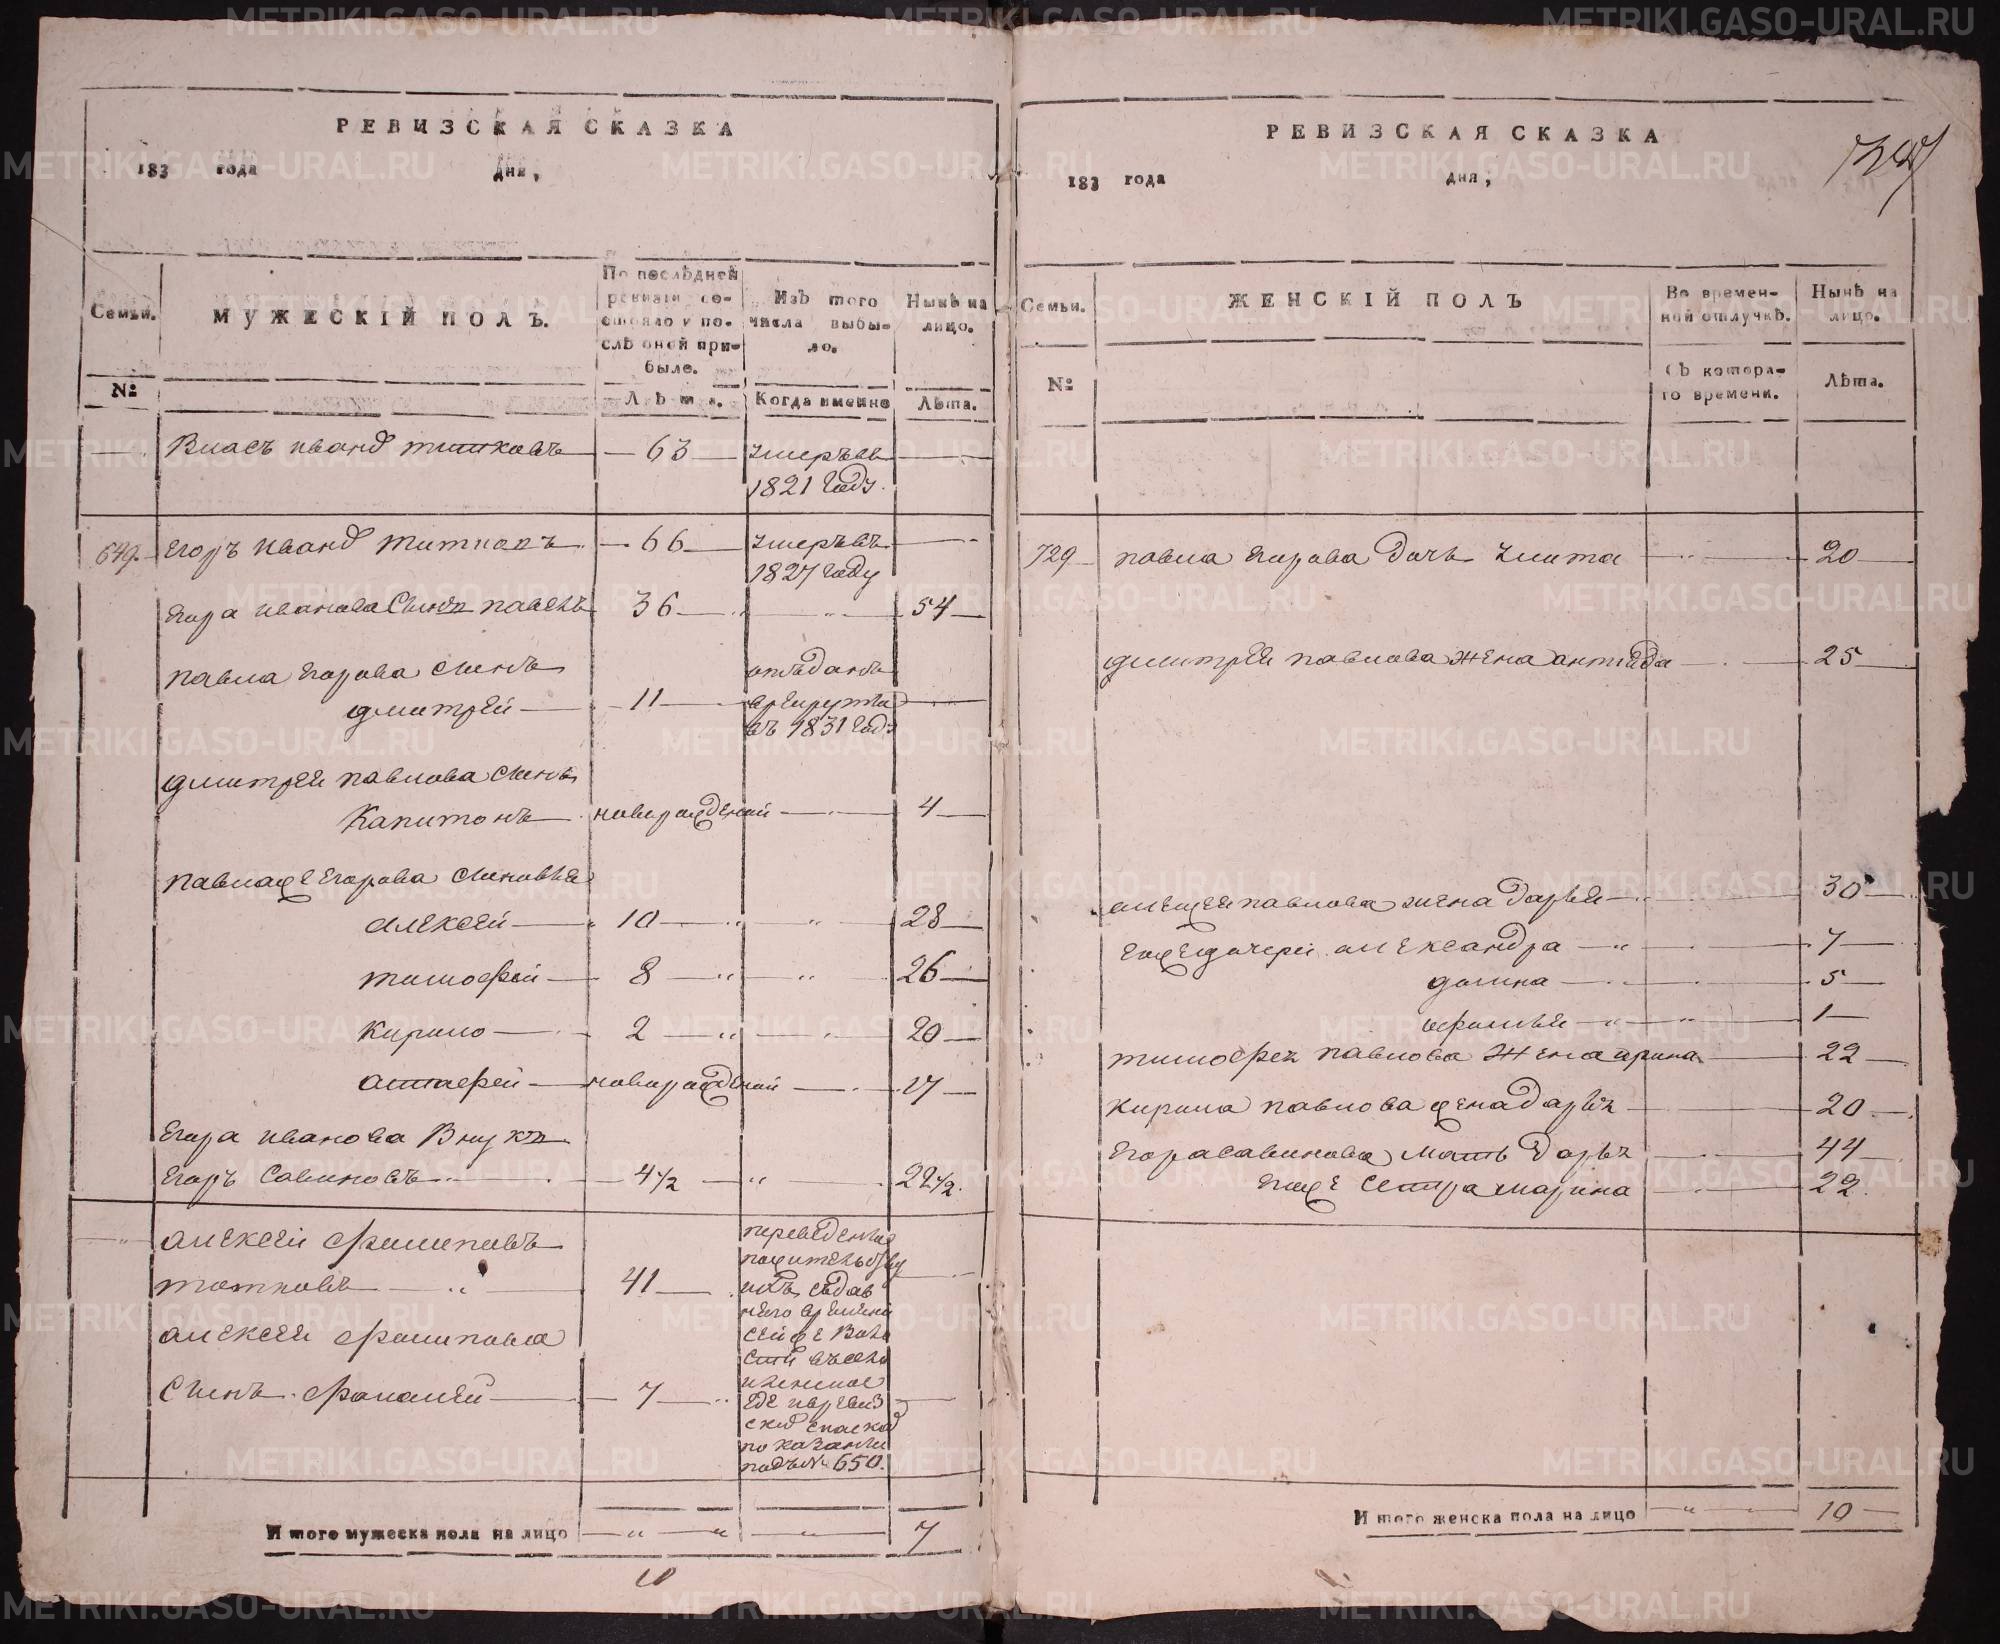 РЕВИЗСКАЯ СКАЗКА
183 года дня,
Семьи.
МУЖЕСКІЙ ПОЛЪ.
По послѣдней ревизіи состояло и послѣ оной прибыле.
Изъ того числа выбыло.
Ныне на лицо.
№
Лѣта.
Когда именно
Лѣта.
Власъ иванд титковъ 63 умеръвъ
1821 году.
649. Егоръ иванд титковъ 66 умеръвъ
1827 году
Егора иванова Сынъ павелъ 36 54
павла Егорова сынъ отъданъ
дмитрей 11 врекруты
въ 1831 году
дмитрей павлова сынъ
Капитонъ новорожденой 4
павлаже Егорова сыновья
алексей 10 28
тимофей 8 26
кирило 2 20
новорожденой 17
Егора иванова Внукъ
Егоръ Савиновъ 4½ 22½.
алексей филиповъ
титковъ 41
алексей филипова
сынъ 7
переведены
подъ № 650.
Итого мужеска пола на лицо 7
РЕВИЗСКАЯ СКАЗКА
183 года дня,
Семьи.
ЖЕНСКІЙ ПОЛЪ
Во временной отлучкѣ.
Нынѣ на лицо.
№
Съ котораго времени.
Лѣта.
729 павла Егорова дочь улита 20
дмитрей павлова жена 25
алексей павлова жена дарья 30
Егожедочери александра 7
домна 5
1
тимофея павлова жена ирина 22
кирила павлова жена дарья 20
Егора савинова мать дарья 44
Егоже сестра марина 22.
Итого женска пола на лицо 10